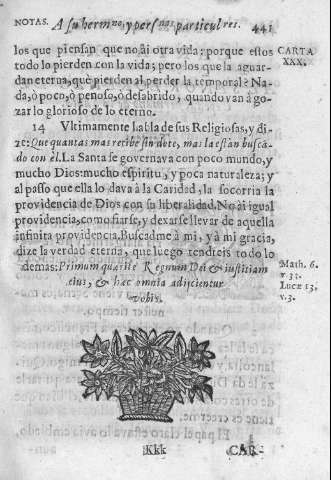 NOTAS. A su herm^no, y pers^nas particul^res. 441
los que piensan que no ài otra vida; porque estos
todo lo pierden con la vida; pero los que la aguar-
dan eterna, què pierden al perder la temporal? Na-
da, ò poco, ò penoso, ò desabrido, quando van à go-
zar lo glorioso de lo eterno.
CARTA
XXX.
14 Vltimamente habla de sus Religiosas, y di-
ze: Que quantas mas recibe sin dote, mas la estàn busca-
do con èl. La Santa se governava con poco mundo, y
mucho Dios: mucho espiritu, y poca naturaleza; y
al passo que ella lo dava à la Caridad, la socorria la
providencia de Dios con su liberalidad. No ài igual
providencia, como fiarse, y dexarse llevar de aquella
infinita providencia. Buscadme à mi, y à mi gracia,
dize la verdad eterna, que luego tendreis todo lo
demàs: Primum quærite Regnum Dei & iustitiam
eius, & hæc omnia adijcientur
vobis.
Math. 6.
v. 3;
Lucæ 13.
v. 3.
Kkk CAR-